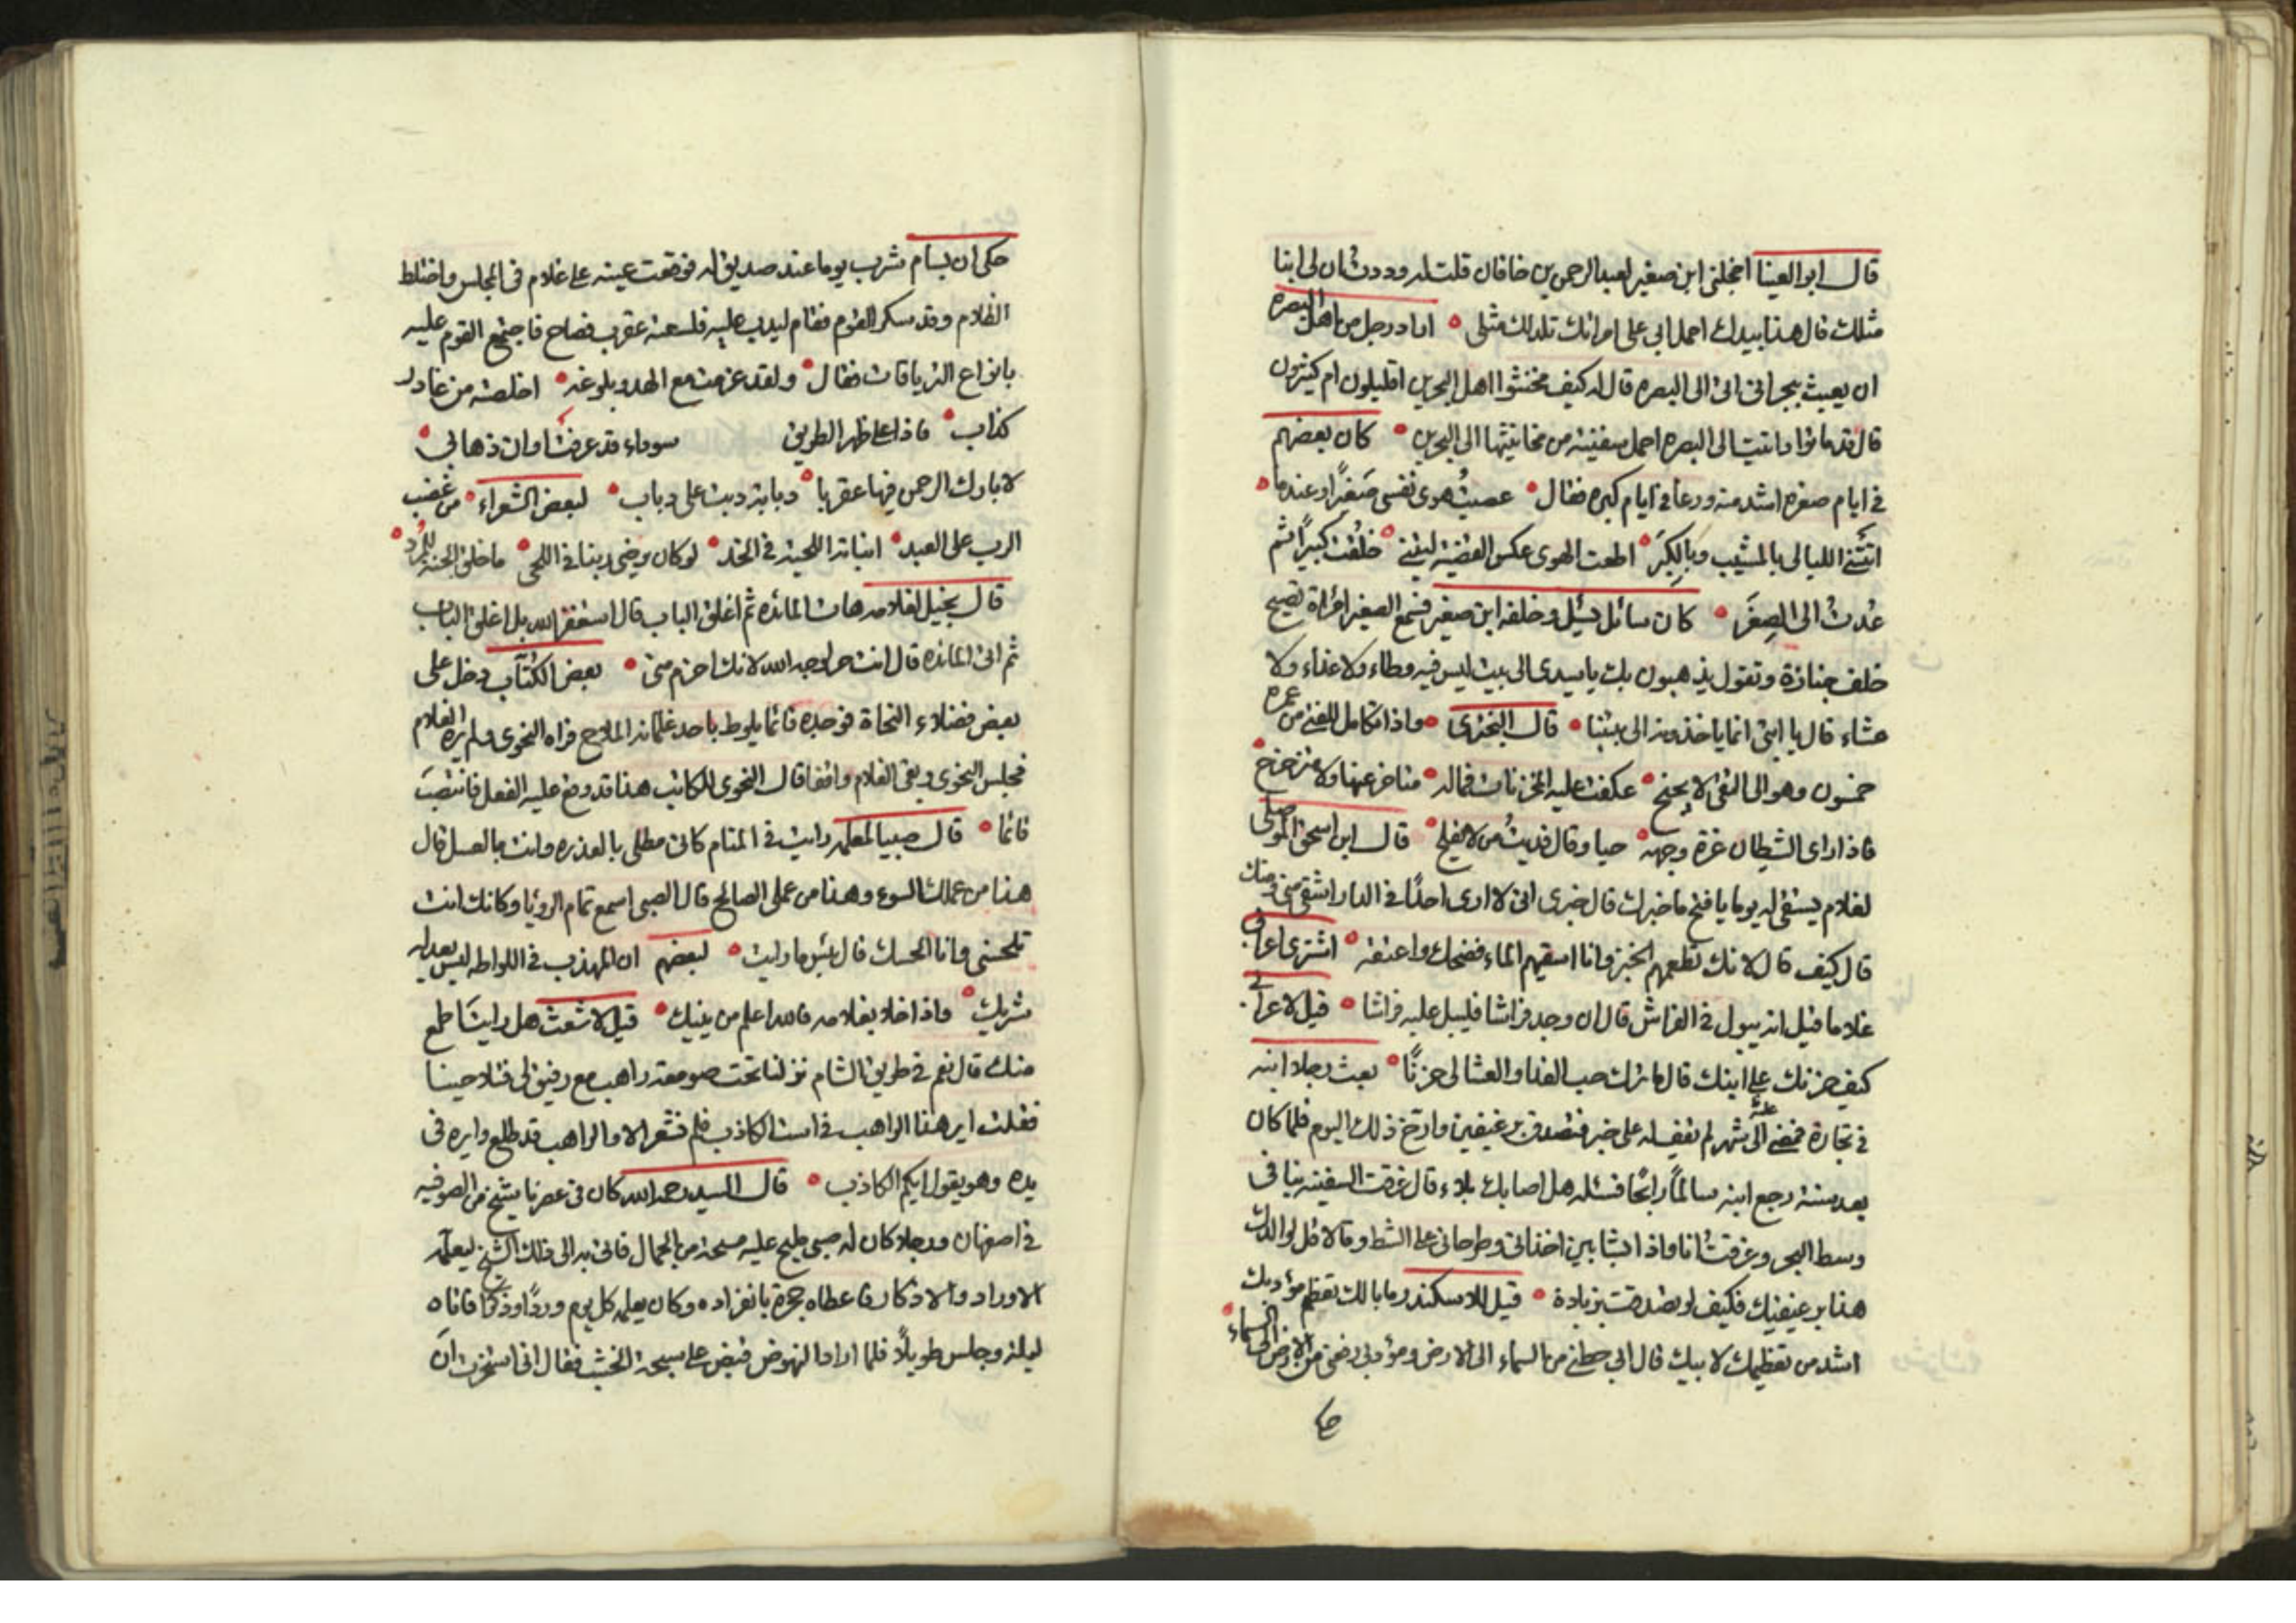 قال ابو العينا اخجلنى ابن صغير لعبد الرحمن بن خاقان قلت له وددت ان لى ابنا
مثلك قال هذا بيدك احمل ابى على امراتك تلد لك مثلى اراد رجل من اهل البصره
ان يعبث ببحرانى اتى الى البصره قال له كيف مخنثوا اهل البحرين اقليلون ام كثيرون
قال قد ماتوا واتيت الى البصره احمل سفينه من مخانيثها الى البحرين كان بعضهم
فى ايام صغره اشد منه ورعا فى ايام كبره فقال عصيتُ هوى نفسى صَغيرًا وعندما
اتتنى الليالى بالمشيب وبالكِبَر اطعت الهوى عكس القضيه ليتنى خلقت كبيرًا ثم
عُدتُ الى الصِغَر كان سائل يسئل وخلفه ابن صغير فسمع الصغير امراة تصيح
خلف جنازة وتقول يذهبون بك يا سيدى الى بيت ليس فيه وطاء ولا غداء ولا
عشاء قال يا ابتى انما ياخذونه الى بيتنا قال البحترى واذا تكامل للفتى من عمره
خمسون وهو الى التقى لا يجنح عكفت عليه المخزيات فماله متاخر عنها ولا متزحزح
فاذا راى الشيطان غرة وجهه حيا وقال فديتُ من لا يفلح قال ابن اسحق الموصلى
لغلام يستقى له يوما يا فتح ما خبرك قال خبرى انى لا ارى احدًا فى الدار اشقى منى ومنك
قال كيف قال لانك تطعمهم الخبز وانا اسقيهم الماء فضحك واعتقه اشترى اعرابى
غلاما فقيل انه يبول فى الفراش قال ان وجد فراشا فليبل عليه فراشا قيل لاعرابى
كيف حزنك على ابنك قال ما ترك حب الغدا والعشا لى حزنًا بعث رجلا ابنه
فى تجارة فمضى عليه اشهر لم يقف له على خبر فتصدق برغيفين وارخ ذلك اليوم فلما كان
بعد سنة رجع ابنه سالمًا رابحًا فسئله هل اصابك بلاء قال غرقت السفينه بنا فى
وسط البحر وغرقتُ انا واذا بشابين اخذانى وطرحانى على الشط وقالا قل لوالدك
هذا برغيفيك فكيف لو تصدقت بزيادة قيل للاسكندر ما بالك تعظم مؤدبك
اشد من تعظيمك لابيك قال ابى حطنى من السماء الى الارض ومؤدبى رفعنى من الارض الى السماء
حكى
حكى ان بسام شرب يوما عند صديق له فوقعت عينه على غلام فى المجلس واختلط
الظلام وقد سكر القوم فقام ليدب عليه فلسعته عقرب فصاح فاجتمع القوم عليه
بانواع الترياقات فقال ولقد عزمت مع الهدو بلوغه اخلصته من غادر
كذاب فاذا على ظهر الطريق سوداء قد عرفت اوان ذهابى
لا بارك الرحمن فيها عقربا دبابة دبت على دباب لبعض الشعراء من غضب
الرب على العبد انباته اللحية فى الخد لو كان يرضى ربنا فى اللحى ما خلق الجنه للمُرد
قال بخيل لغلامه هات المائده ثم اغلق الباب قال استغفر الله بل اغلق الباب
ثم اتى المائده قال انت حر لوجه الله لانك احزم منى بعض الكتاب دخل على
بعض فضلاء النحاة فوجده قائما يلوط باحد غلمانه الملاح فراه النحوى ولم يره الغلام
فجلس النحوى وبقى الغلام واقفا قال النحوى للكاتب هذا قد وقع عليه الفعل فانتصَبَ
قائما قال صبى لمعلمه رايت فى المنام كانى مطلى بالعذره وانت بالعسل قال
هذا من عملك السوء وهذا من عملى الصالح قال الصبى اسمع تمام الرويا وكانك انت
تلحسنى وانا الحسك قال بئس ما رايت لبعضهم ان المهذب فى اللواطه ليس يعدله
شريك واذا خلا بغلامه فالله اعلم من ينيك قيل لاشعث هل رايت اطمع
منك قال نعم فى طريق الشام نزلنا تحت صومعة راهب مع رفيق لى فتلاحينا
فقلت اير هذا الراهب فى است الكاذب فلم نشعر الا والراهب قد طلع وايره فى
يده وهو يقول ايكم الكاذب قال السيد رحمه الله كان فى عصرنا شيخ من الصوفيه
فى اصفهان ورجلا كان له صبى مليح عليه مسحة من الجمال فاتى به الى ذلك الشيخ ليعلمه
الاوراد والاذكار فاعطاه حجرة بانفراده وكان يعلمه كل يوم وردًا وذكرًا فاتاه
ليلة وجلس طويلًا فلما اراد النهوض قبض على سبحة الخشب فقال انى استخرت ان